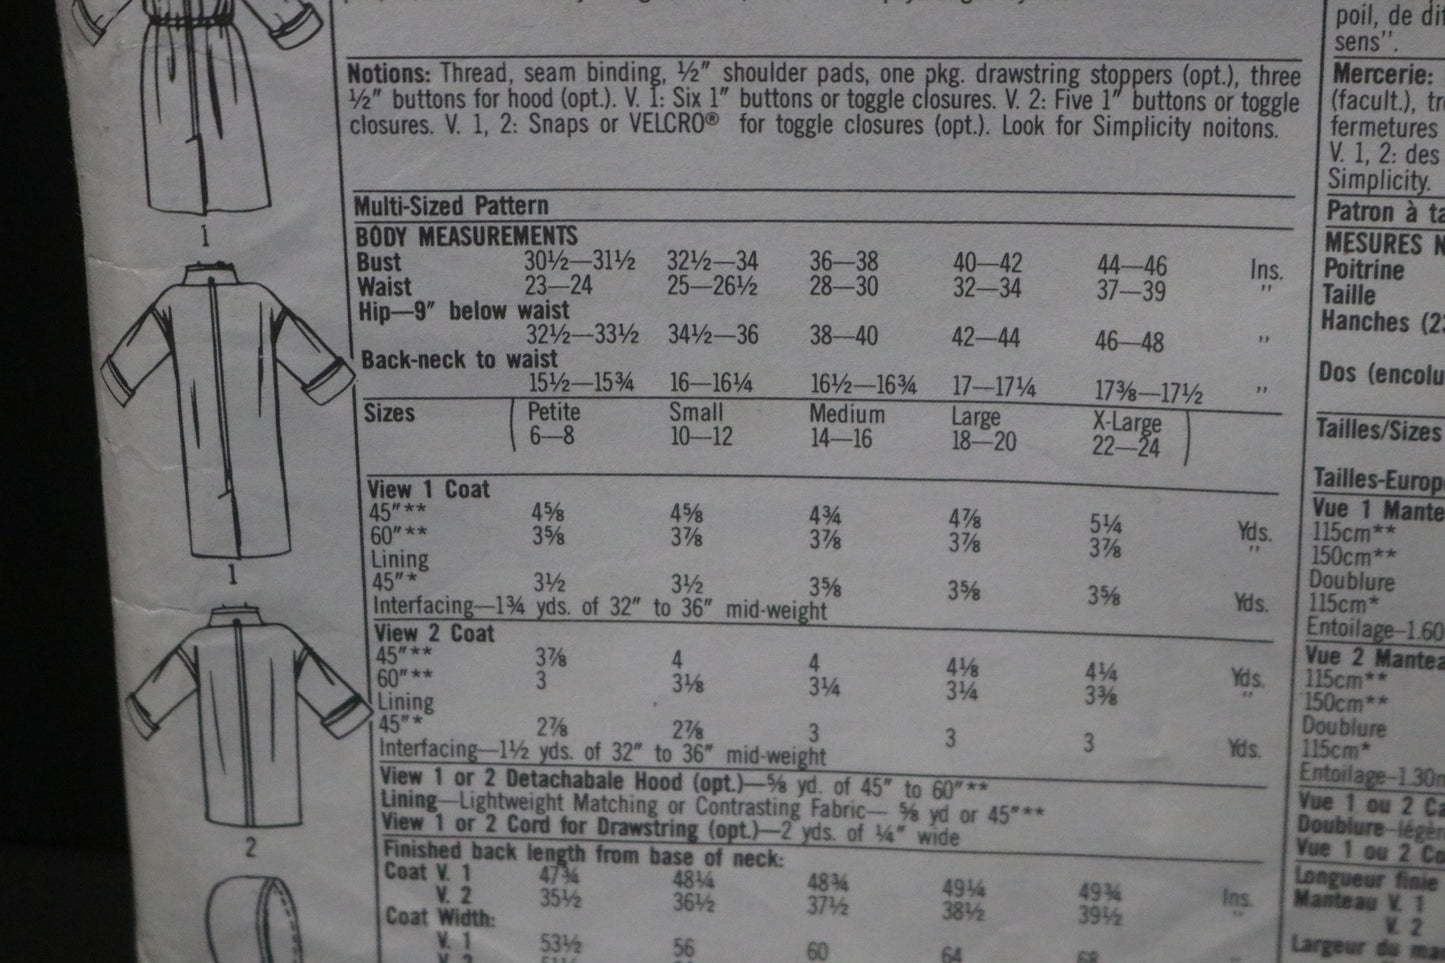 Notions: Thread, seam binding, ½" shoulder pads, one pkg. drawstring stoppers (opt.), three
½" buttons for hood (opt.). V. 1: Six 1" buttons or toggle closures. V. 2: Five 1" buttons or toggle
closures. V. 1, 2: Snaps or VELCRO® for toggle closures (opt.). Look for Simplicity noitons.
Multi-Sized Pattern
BODY MEASUREMENTS
Bust 30½—31½ 32½—34 36—38 40—42 44—46 Ins.
Waist 23—24 25—26½ 28—30 32—34 37—39 "
Hip—9" below waist
32½—33½ 34½—36 38—40 42—44 46—48 "
Back-neck to waist
15½—15¾ 16—16¼ 16½—16¾ 17—17¼ 17⅜—17½ "
Sizes ( Petite Small Medium Large X-Large )
6—8 10—12 14—16 18—20 22—24
View 1 Coat
45"** 4⅝ 4⅝ 4¾ 4⅞ 5¼ Yds.
60"** 3⅝ 3⅞ 3⅞ 3⅞ 3⅞ "
Lining
45"* 3½ 3½ 3⅝ 3⅝ 3⅝ Yds.
Interfacing—1¾ yds. of 32" to 36" mid-weight
View 2 Coat
45"** 3⅞ 4 4 4⅛ 4¼ Yds.
60"** 3 3⅛ 3¼ 3¼ 3⅜ "
Lining
45"* 2⅞ 2⅞ 3 3 3 Yds.
Interfacing—1½ yds. of 32" to 36" mid-weight
View 1 or 2 Detachabale Hood (opt.)—⅝ yd. of 45" to 60"**
Lining—Lightweight Matching or Contrasting Fabric— ⅝ yd or 45"**
View 1 or 2 Cord for Drawstring (opt.)—2 yds. of ¼" wide
Finished back length from base of neck:
Coat V. 1 47¾ 48¼ 48¾ 49¼ 49¾ Ins.
V. 2 35½ 36½ 37½ 38½ 39½ "
Coat Width:
V. 1 53½ 56 60 64 68
1
1
2
poil, de
sens".
Mercerie:
(facult.),
fermetures
V. 1, 2: des
Simplicity.
Patron à
MESURES
Poitrine
Taille
Hanches
Dos
Tailles/Sizes
Vue 1
115cm**
150cm**
Doublure
115cm*
Entoilage–1.60
Vue 2
115cm**
150cm**
Doublure
115cm*
Vue 1 ou 2
Vue 1 ou 2
Longueur finie
Manteau V. 1
V. 2
Largeur du